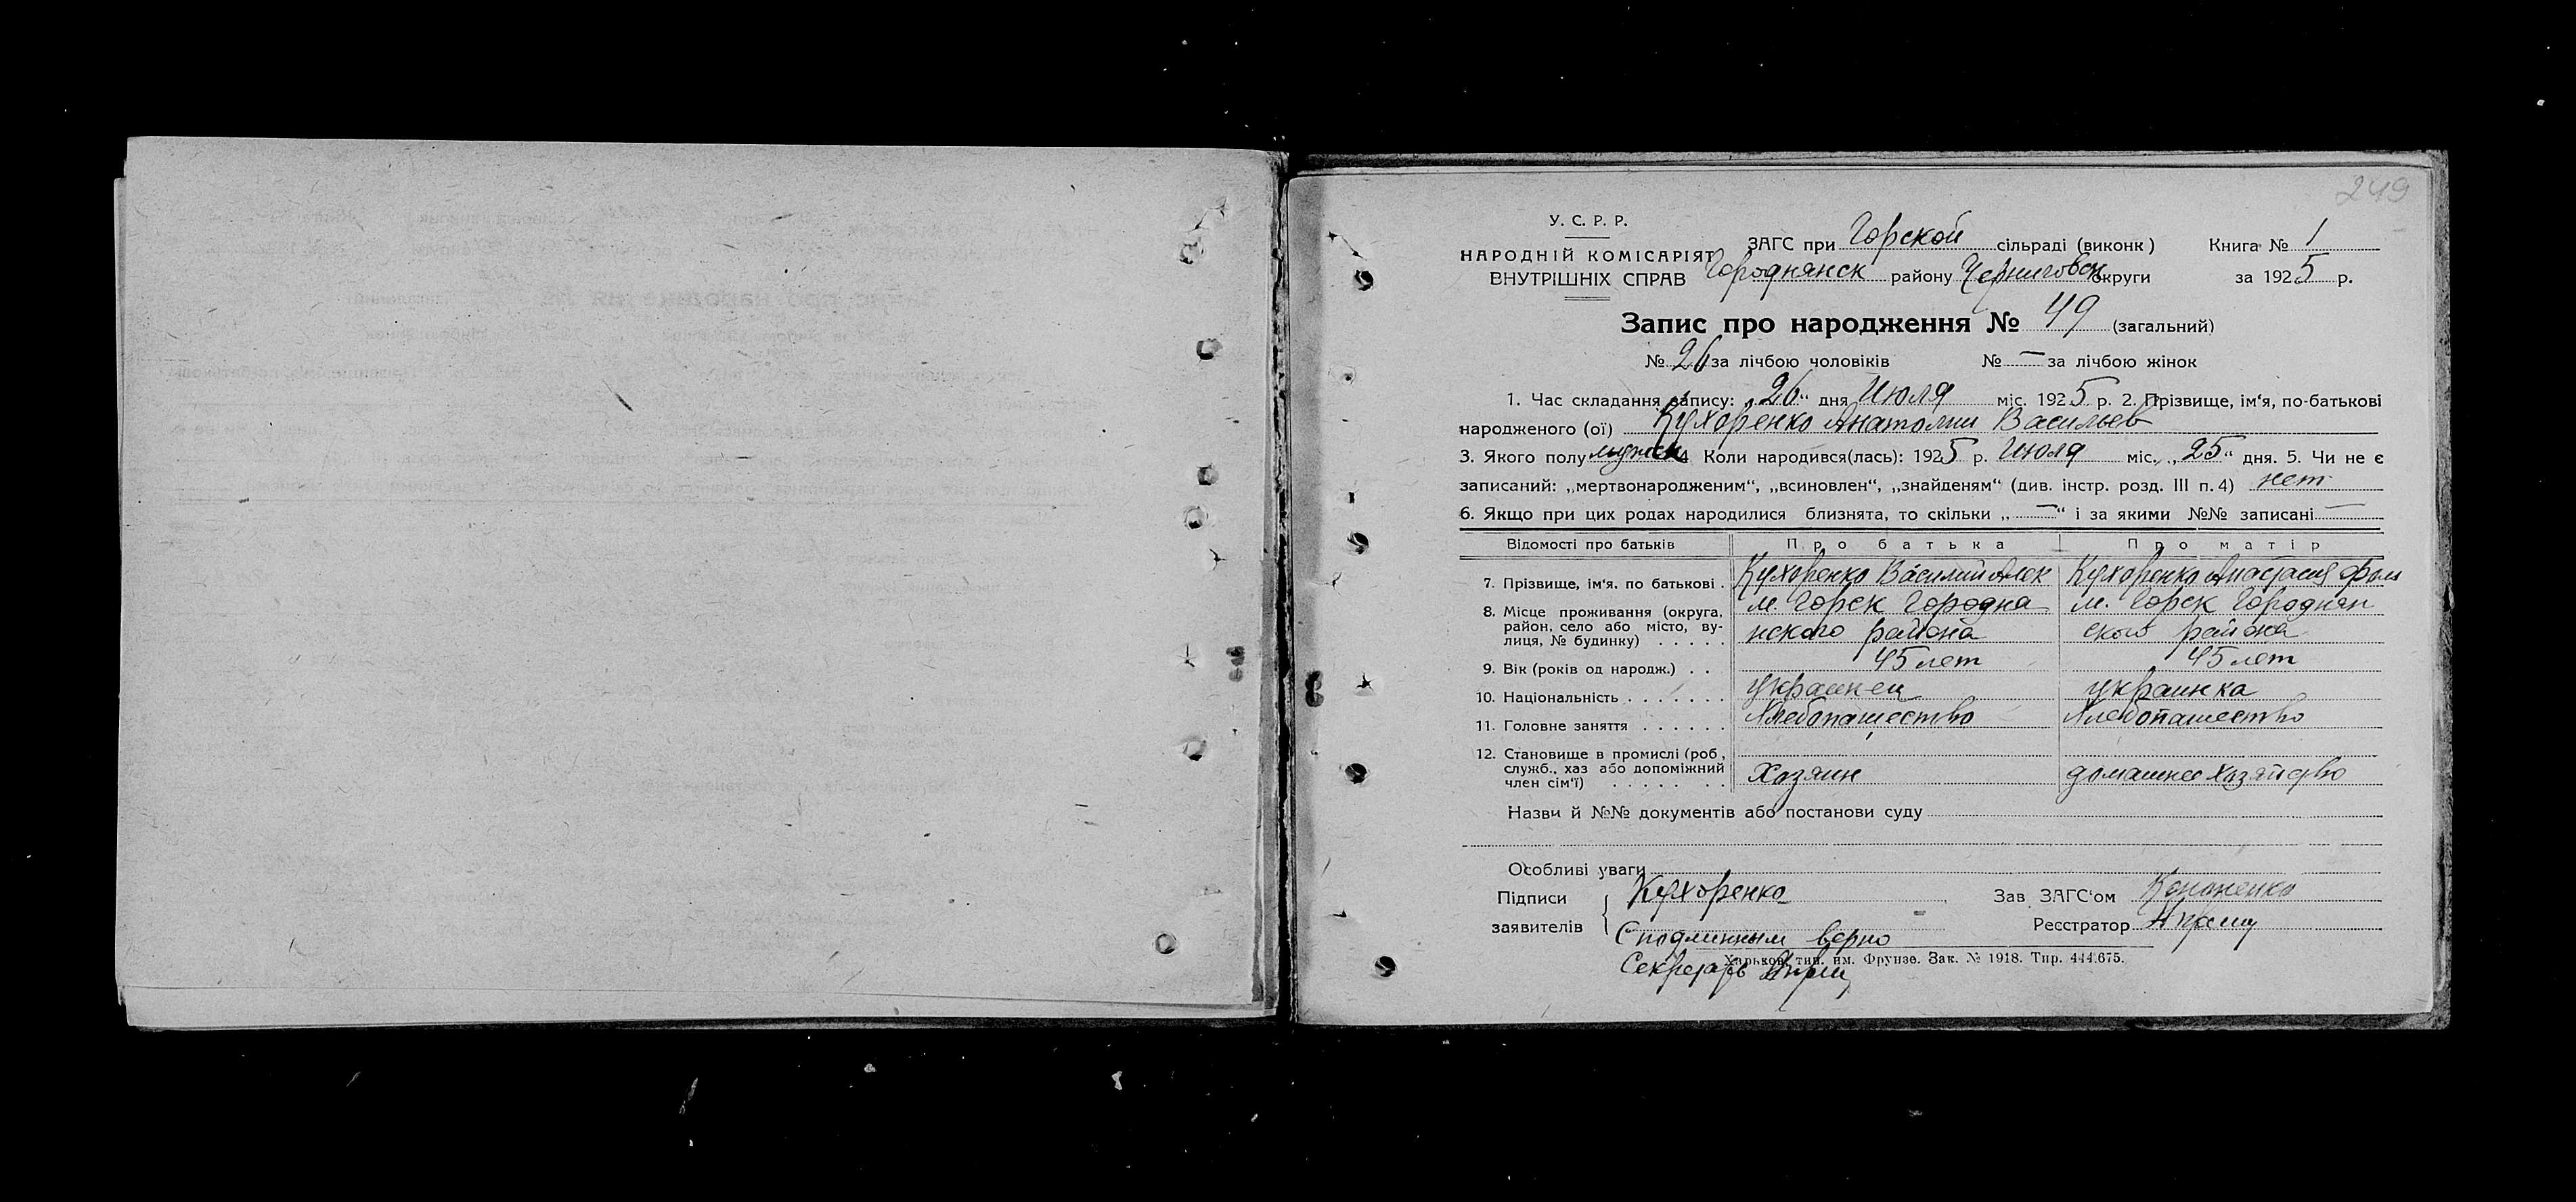 249
У. С. Р. Р.
НАРОДНІЙ КОМІСАРІЯТ
ВНУТРІШНІХ СПРАВ
ЗАГС при Горской сільраді (виконк) Книга № 1
Городнянск району Черниговск округи за 1925 р.
Запис про народження № 49 (загальний)
№ 26 за лічбою чоловіків № — за лічбою жінок
1. Час складання запису: „26“ дня Июля міс. 1925 р. 2. Прізвище, ім‘я, по-батькові
народженого (ої) Кухоренко Анатолии Васильев
3. Якого полу мужск 4 Коли народився(лась): 1925 р. Июля міс. „25“ дня. 5. Чи не є
записаний: „мертвонародженим“, „всиновлен“, „знайденям“ (див. інстр. розд. III п. 4) нет
6. Якщо при цих родах народилися близнята, то скільки „—“ і за якими №№ записані —
Відомості про батьків Про батька Про матір
7. Прізвище, ім‘я, по батькові . Кухоренко Василий Алек Кухоренко Анастасия Фом
8. Місце проживання (округа, м. Горск Городня м. Горск Городнян
район, село або місто, ву-
лиця, № будинку) . . . . . нского района ского района
9. Вік (років од народж.) . . 45 лет 45 лет
10. Національність . . . . . . . украинец украинка
11. Головне заняття . . . . . . Хлебопашество Хлебопашество
12. Становище в промислі (роб,
служб., хаз або допоміжний
член сім‘ї) . . . . . . . Хозяин домашнее хозяйство
Назви й №№ документів або постанови суду
Особливі уваги
Підписи Кухоренко Зав. ЗАГС‘ом Кононенко
заявителів Реєстратор
С подлинным верно
Харьков, тип. им. Фрунзе. Зак. № 1918. Тир. 444.675.
Секретарь